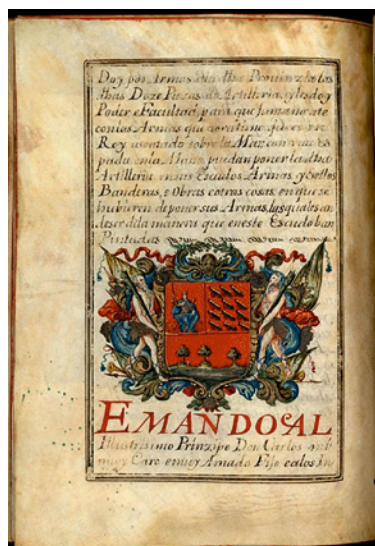 Doy por Armas ala dha Provinzia las
dhas Doze Piezas de Artilleria, y les doy
Poder e Facultad, para que juntamente
con las Armas que
Rey asentado sobre la Mar con una es
pada en la Mano, puedan poner la dha
Artilleria en sus Escudos, Armas, y Sellos
Banderas, e Obras e otras cosas, en que se
hubieren de poner sus Armas, las quales an
de ser de la manera que en este Escudo ban
Pintadas
EMANDO AL
Illustrisimo Prinzipe Don Carlos mi
muy Caro e muy Amado Fijo e a los In